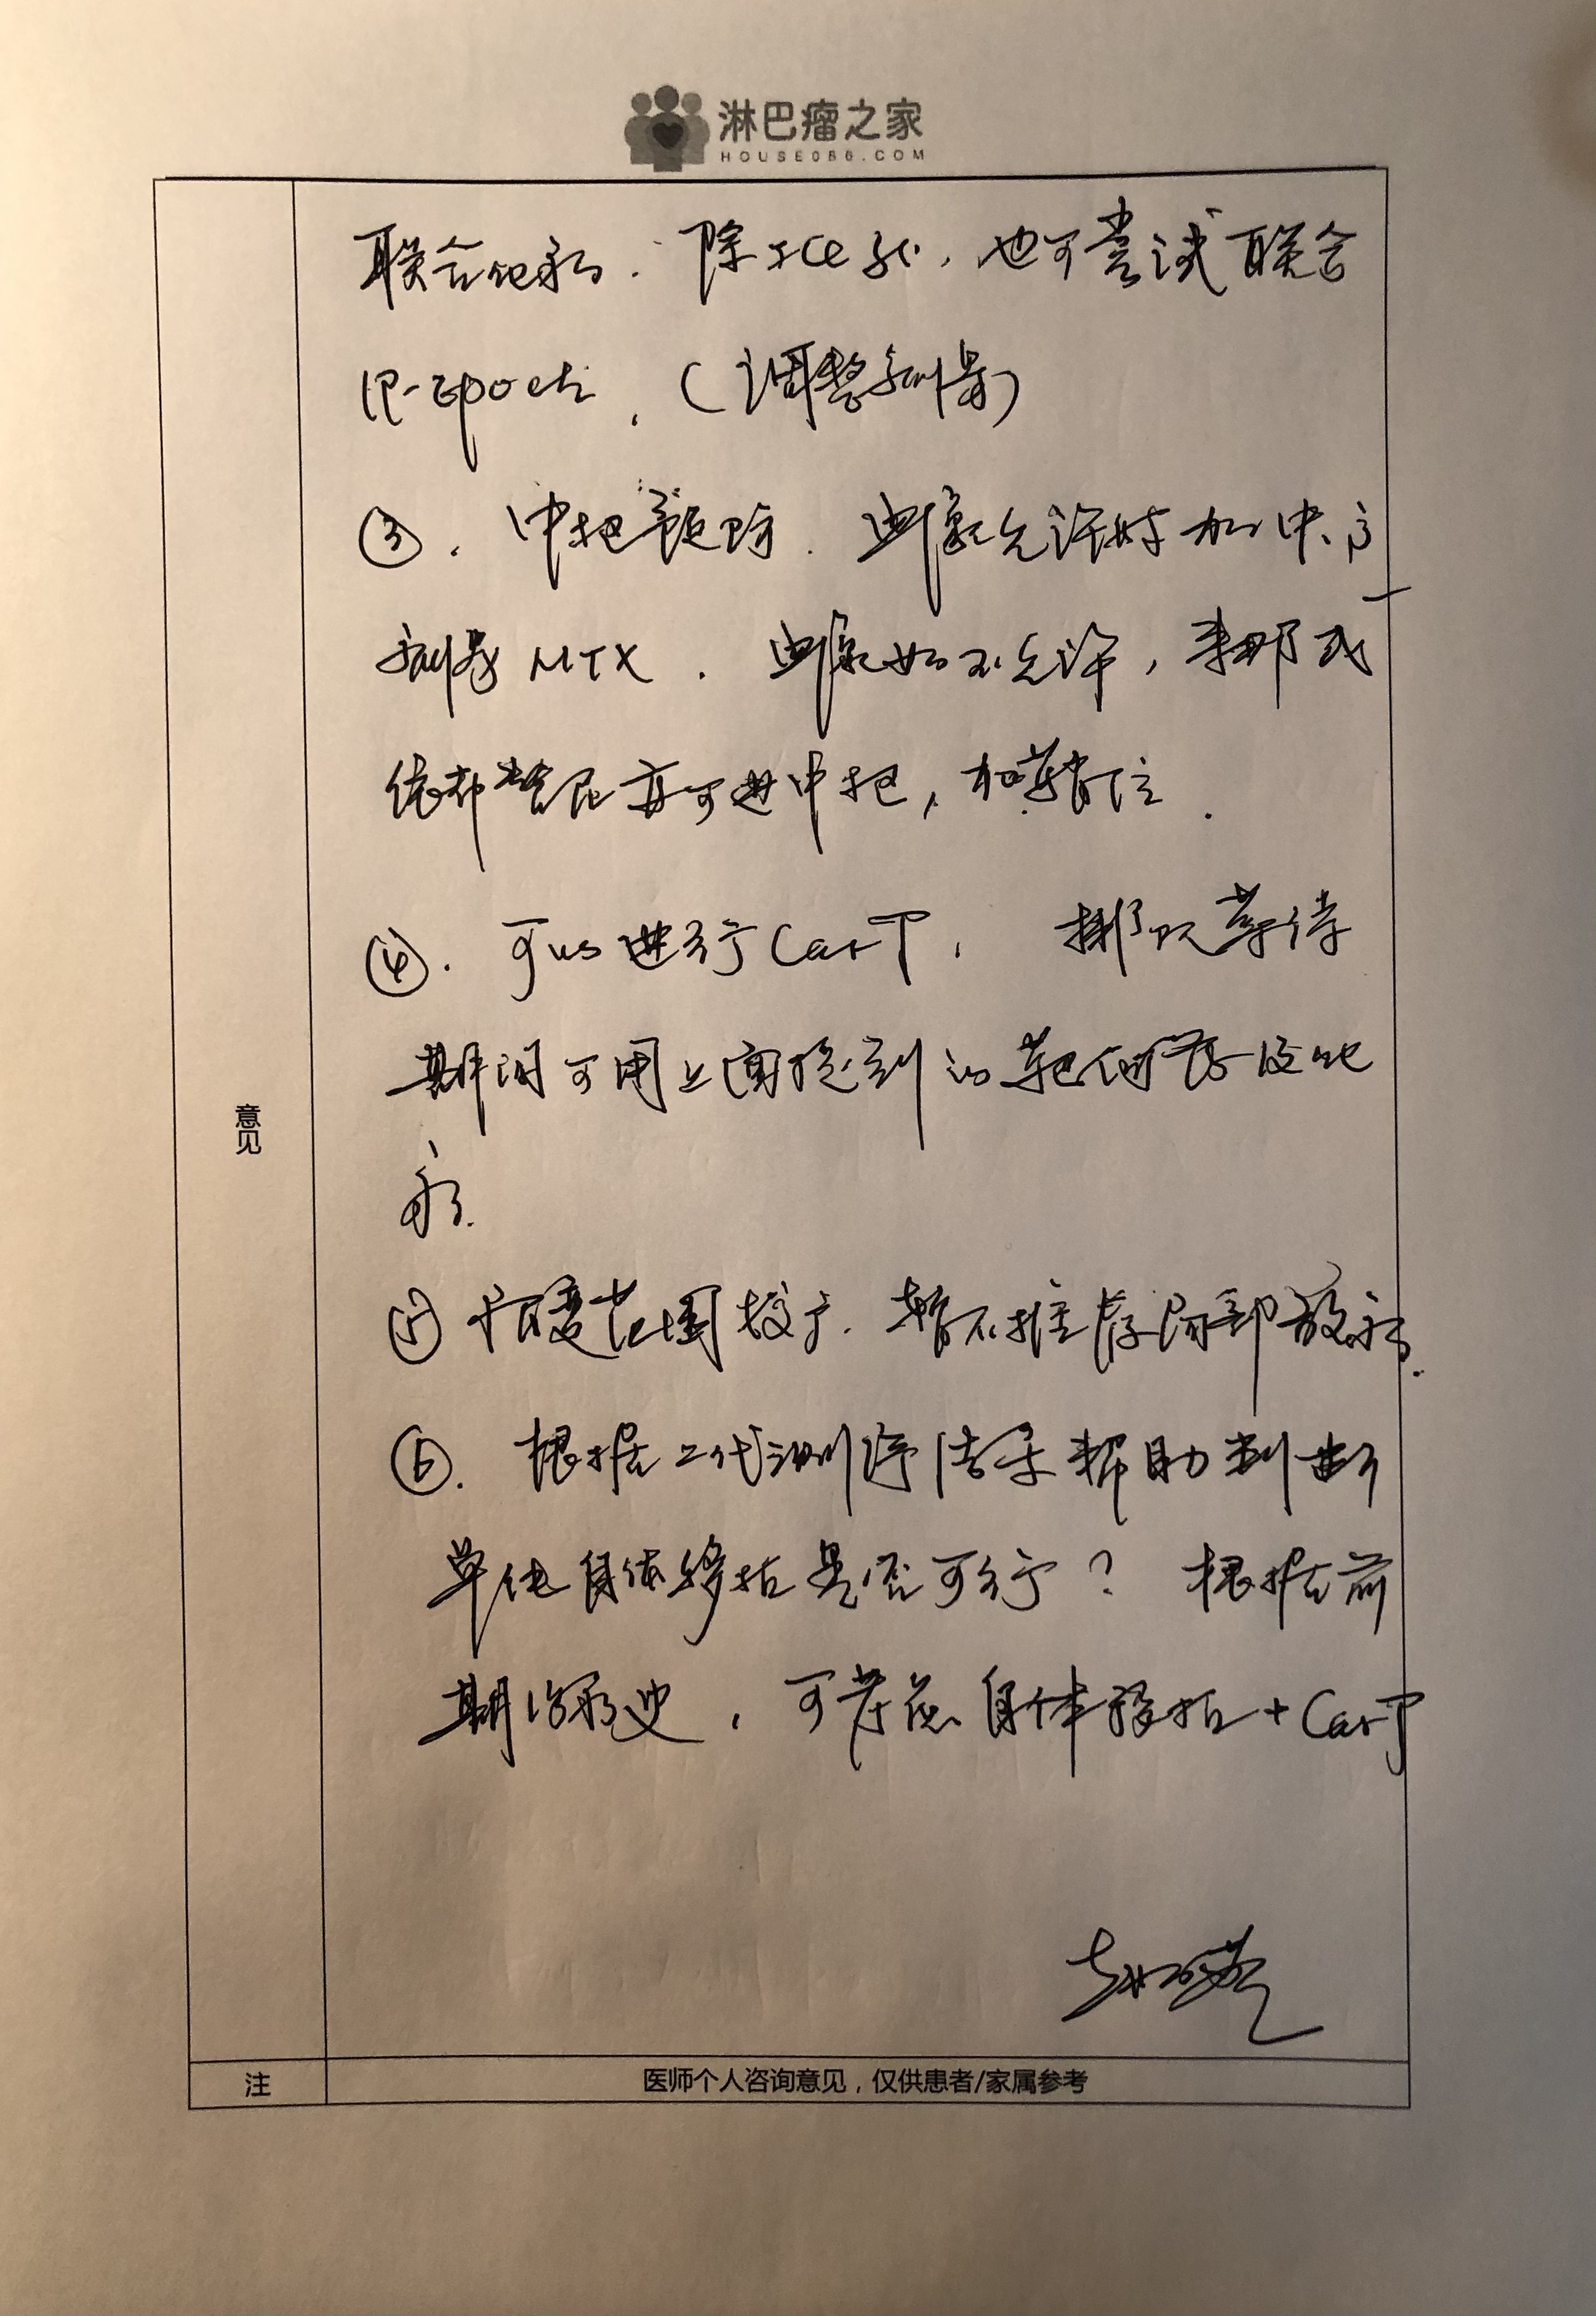 淋巴瘤之家
HOUSE086.COM
联合化疗. 除ICE外, 也可尝试联合
R-Epoch. (调整剂量)
③. 中枢预防. 血象允许时加中、高
剂量MTX. 血象如不允许, 来那或
依布替尼亦可进中枢, 和鞘注.
④. 可以进行CarT, 排队等待
期间可用上面提到的靶向药及化
疗.
⑤ 病变范围较广. 暂不推荐局部放疗.
⑥. 根据二代测序结果帮助判断
单纯自体移植是否可行? 根据前
期治疗史, 可考虑自体移植+CarT
意见
注
医师个人咨询意见，仅供患者/家属参考